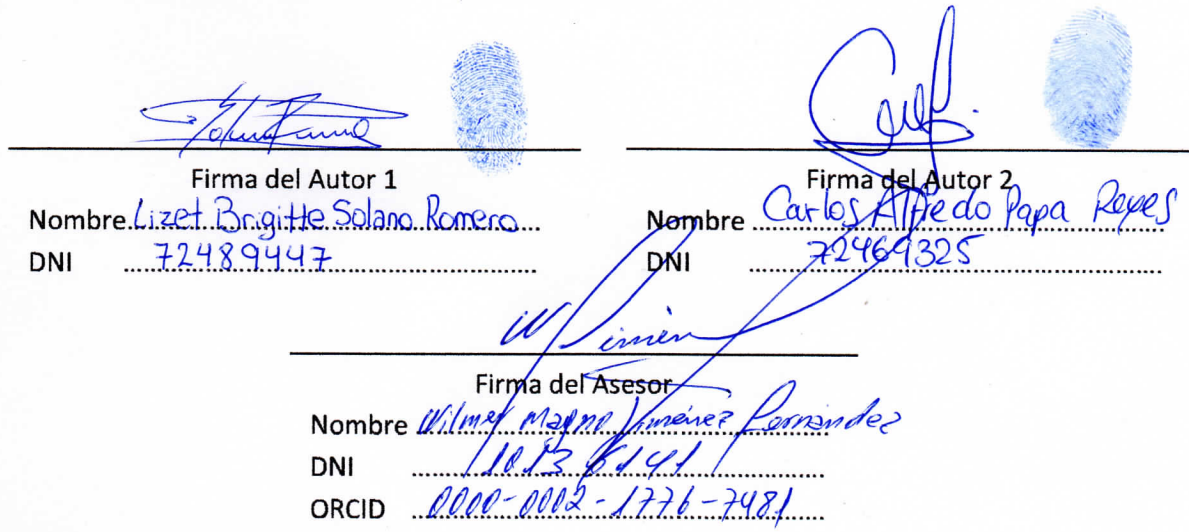 Firma del Autor 1
Nombre Lizet Brigitte Solano Romero
DNI 72489447
Firma del Autor 2
Nombre Carlos Alfredo Papa Reyes
DNI 72469325
Firma del Asesor
Nombre Wilmer Magno Jimenez Fernandez
DNI 10136141
ORCID 0000-0002-1776-7481